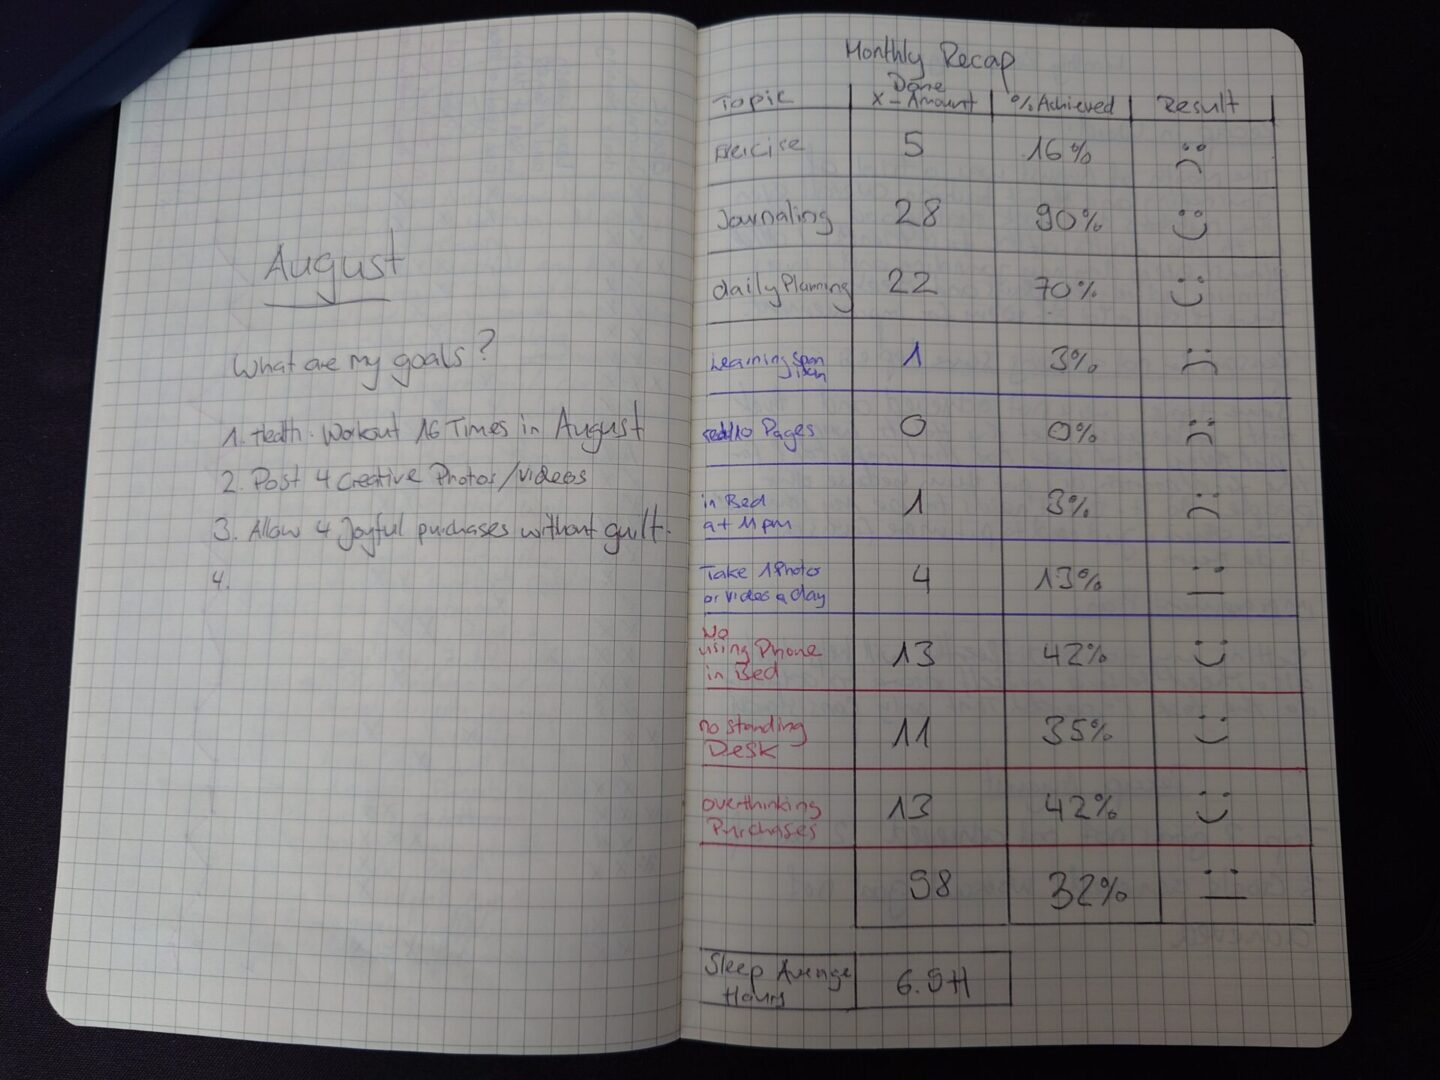 August
What are my goals?
1. Health. Workout 16 Times in August
2. Post 4 Creative Photos/videos
3. Allow 4 Joyful purchases without guilt.
4.
Monthly Recap
Topic Done X-Amount % Achieved Result
Exercise 5 16%
Journaling 28 90%
daily Planning 22 70%
Learning 1 3%
10 Pages 0 0%
in Bed
at 11pm 1 3%
Take 1 Photos
or videos a day 4 13%
No
using Phone
in Bed 13 42%
no standing
Desk 11 35%
overthinking
Purchases 13 42%
98 32%
Sleep Average
Hours 6.9H